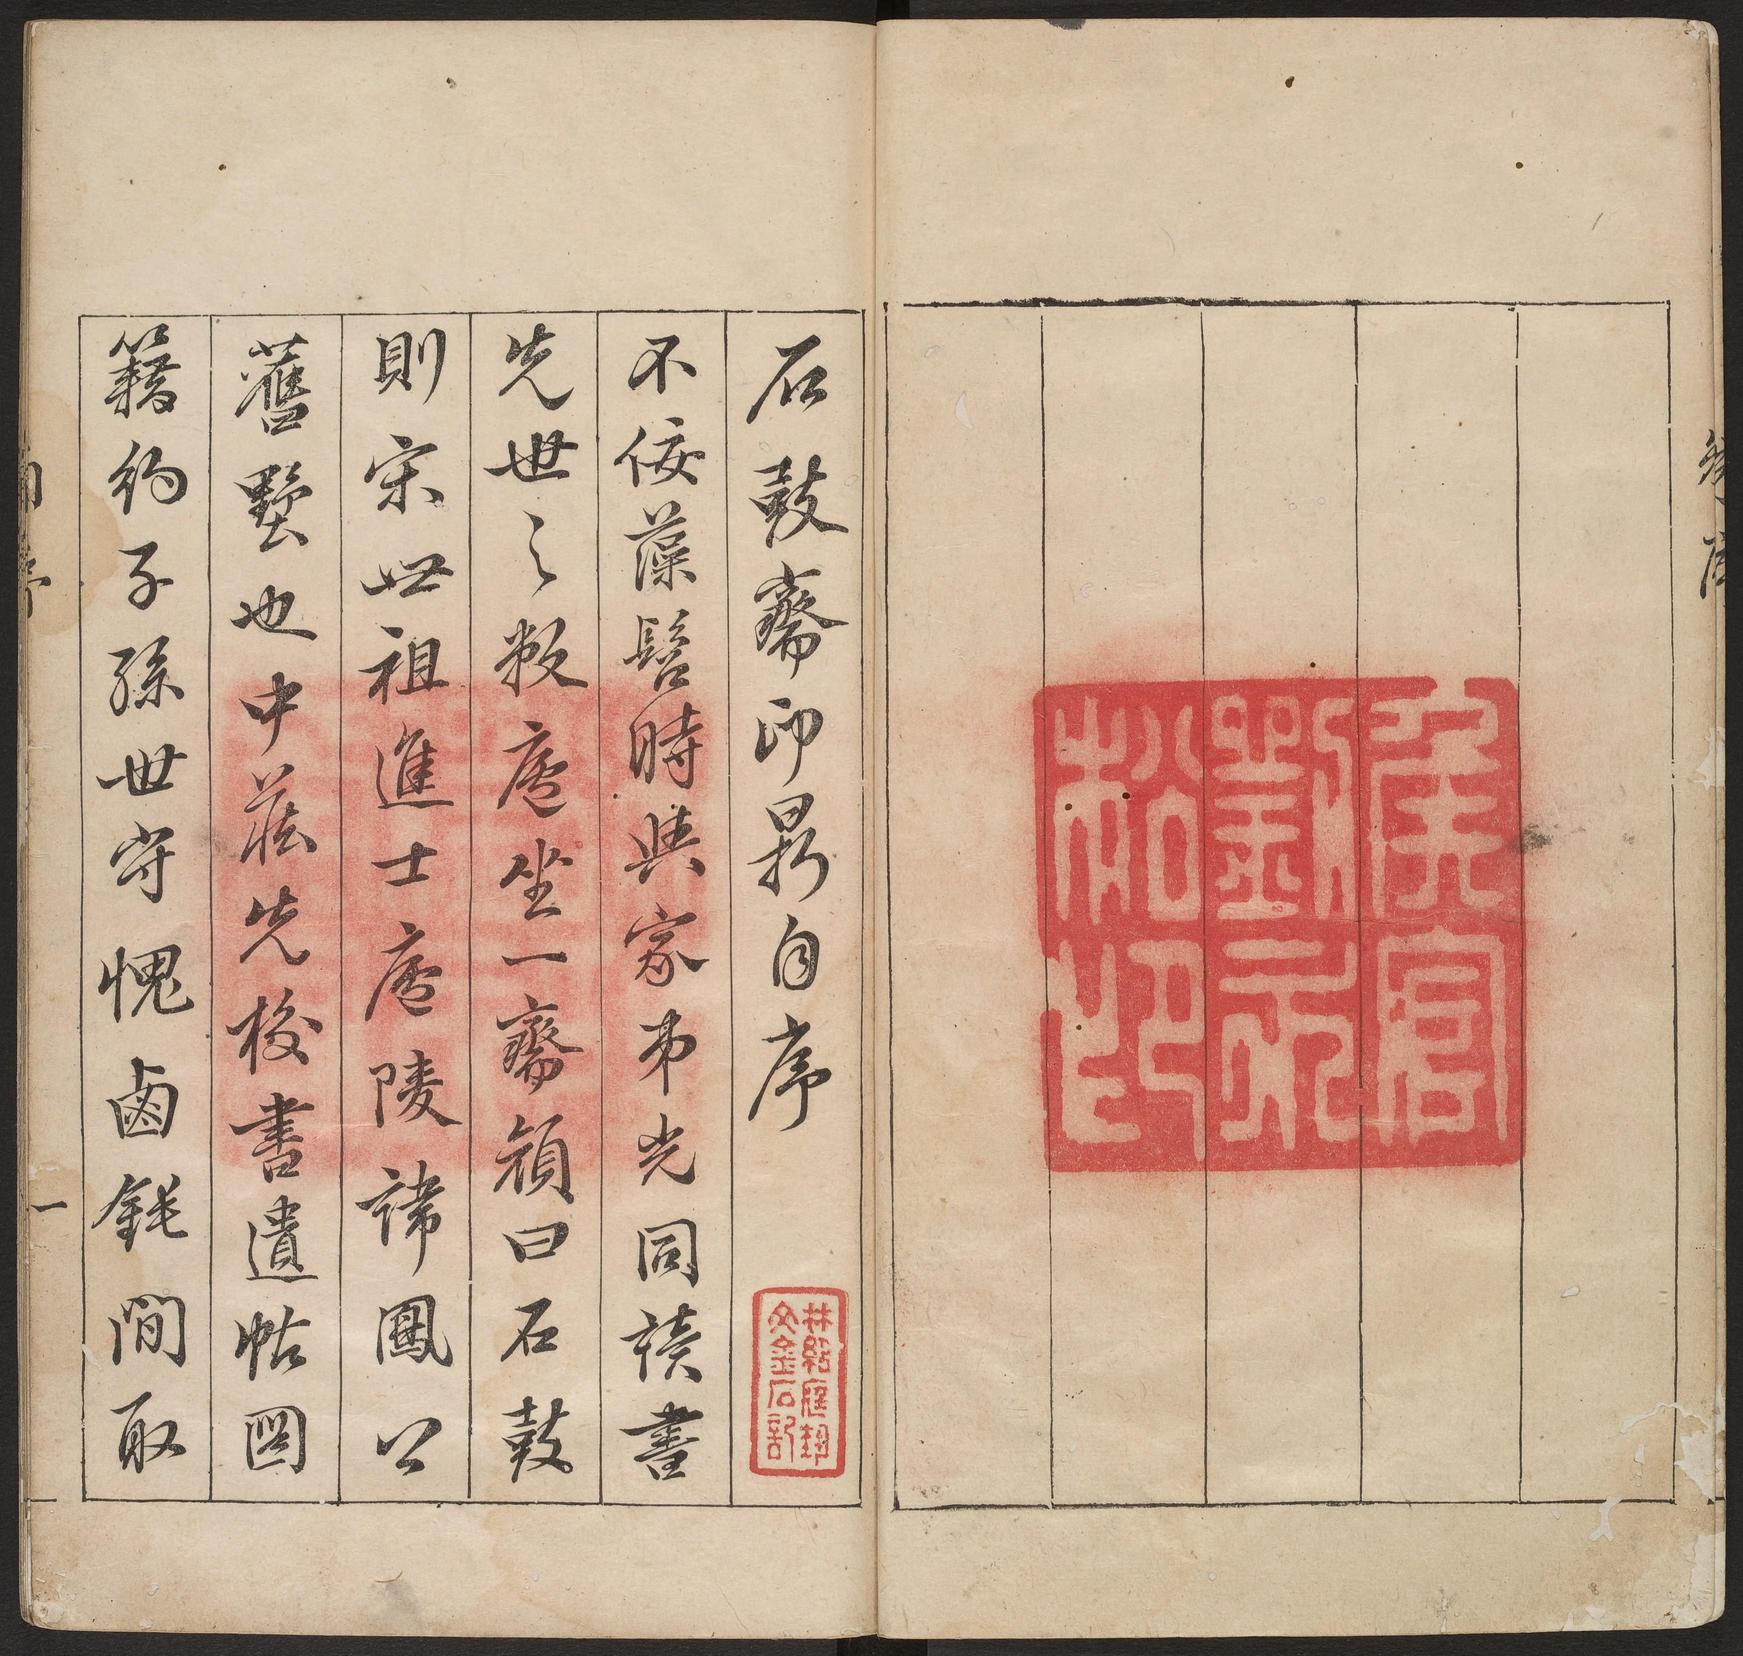 侯官
劉永
松印
石鼓齋印鼎自序
林紹庭
金石記
不佞藻髫時與家弟光同讀書
先世之敝廬坐一齋顏曰石鼓
則宋世祖進士廬陵諱鳳公
舊墅也中藏先校書遺帖圖
籍約子孫世守愧鹵鈍間取
自序
一